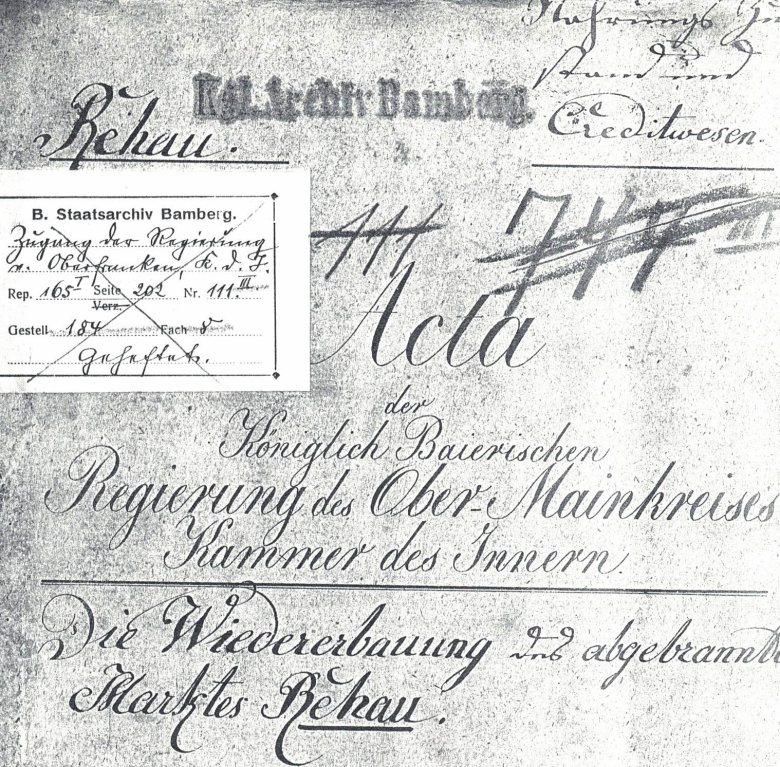 Nahrungs Zu
stand und
Creditwesen.
Kgl. Archiv Bamberg.
Rehau.
B. Staatsarchiv Bamberg.
Zugang der Regierung
v. Oberfranken, K. d. I.
Rep. 165 I Seite 202 Nr. 111. III
Verz.
Gestell 184 Fach 8
Geheftet.
111 744 III
Acta
der
Königlich Baierischen
Regierung des Ober-Mainkreises
Kammer des Innern.
Die Wiedererbauung des abgebrannte
Marktes Rehau.